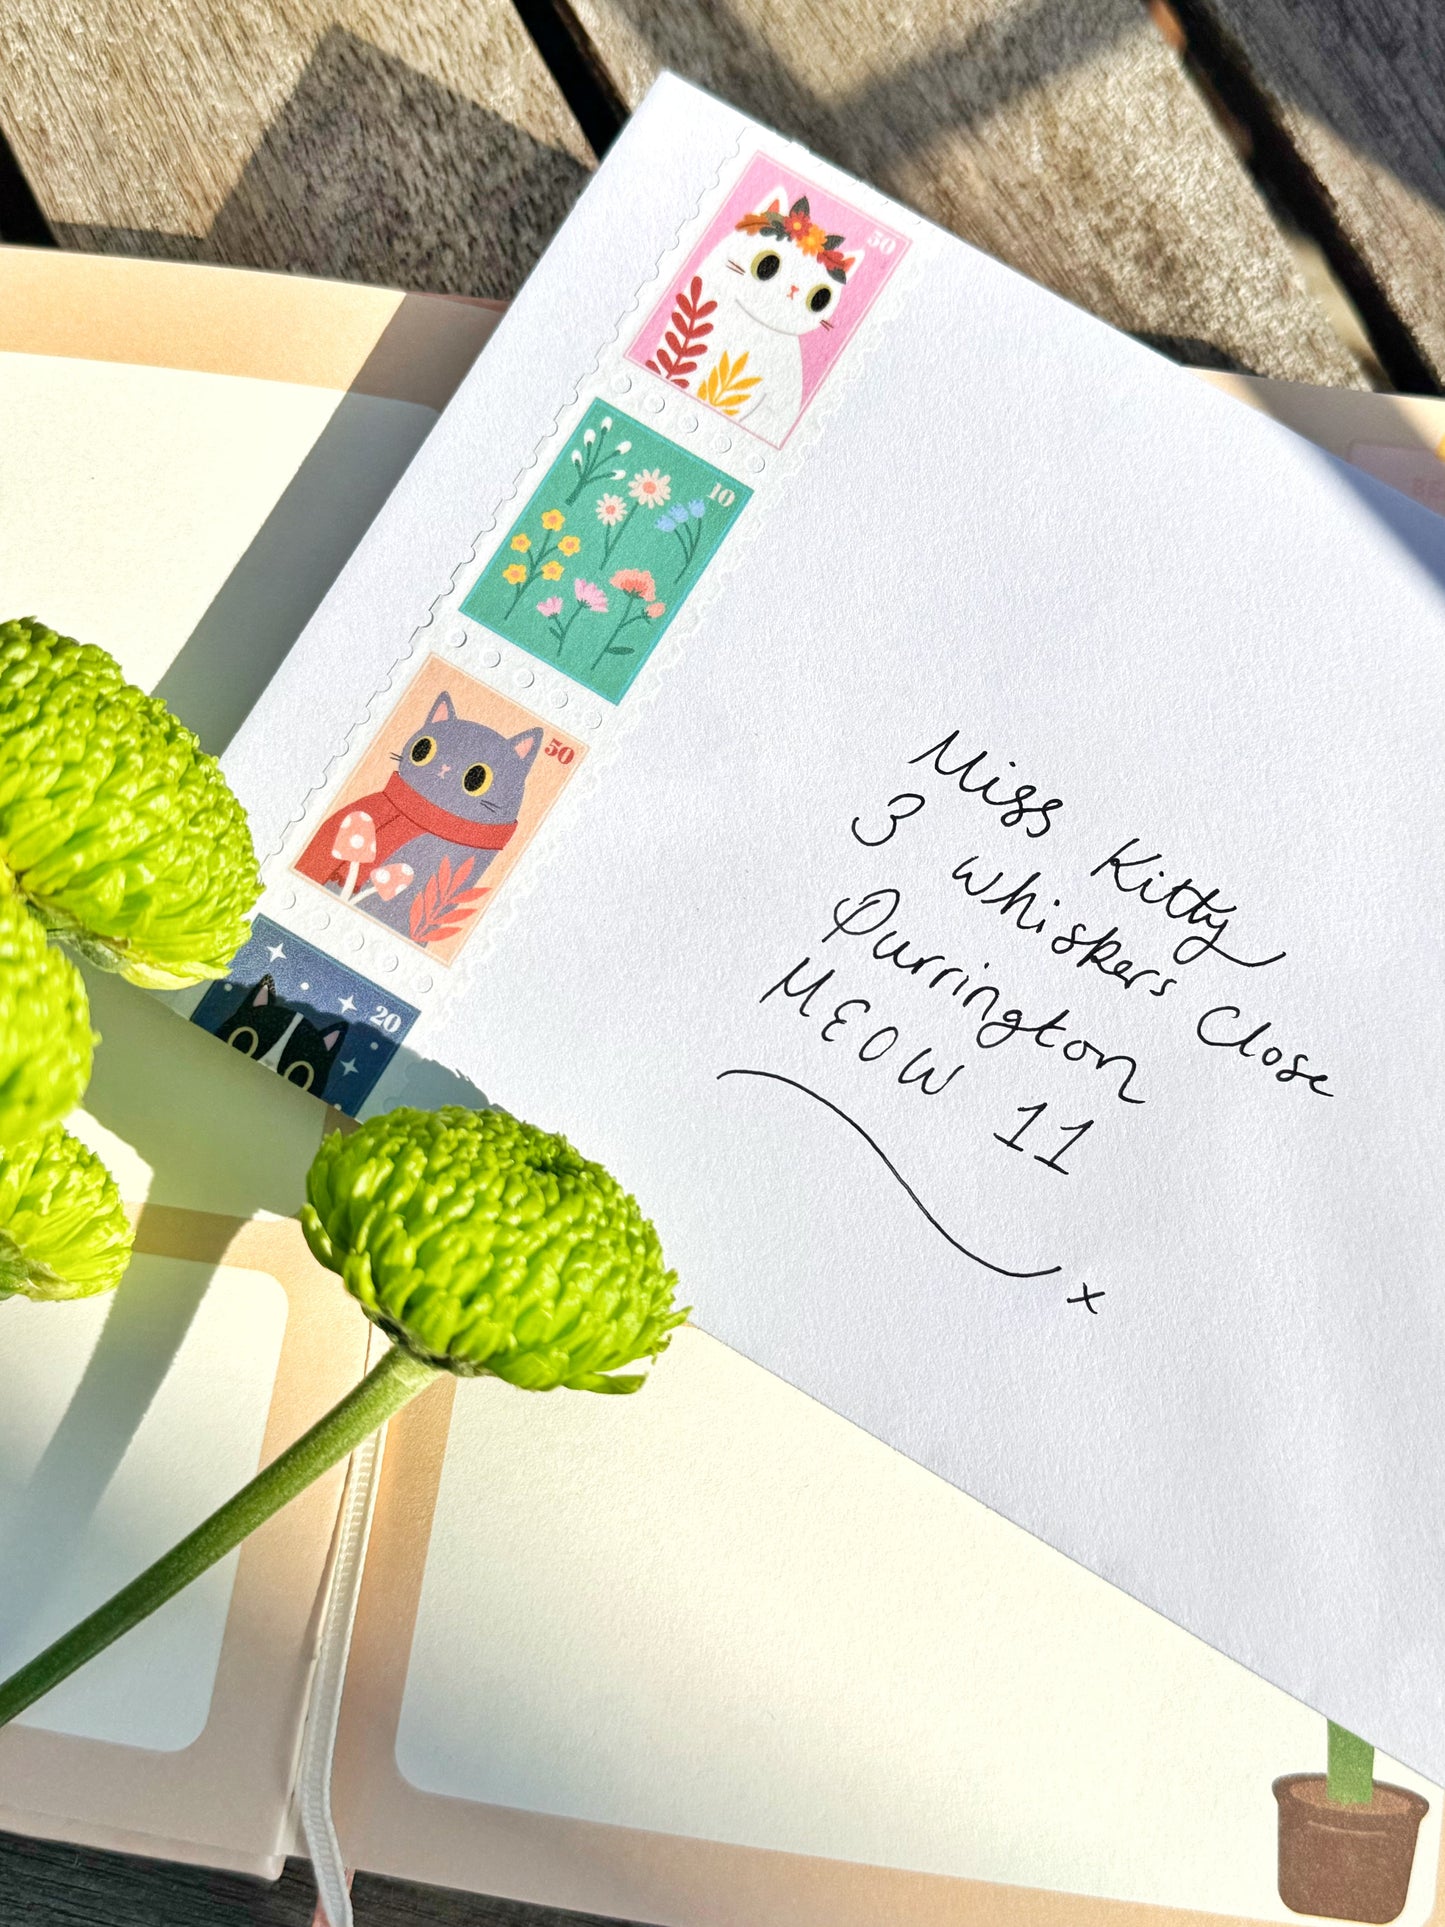 50
10
50
20
Miss Kitty
3 Whiskers Close
Purrington
MEOW 11
x